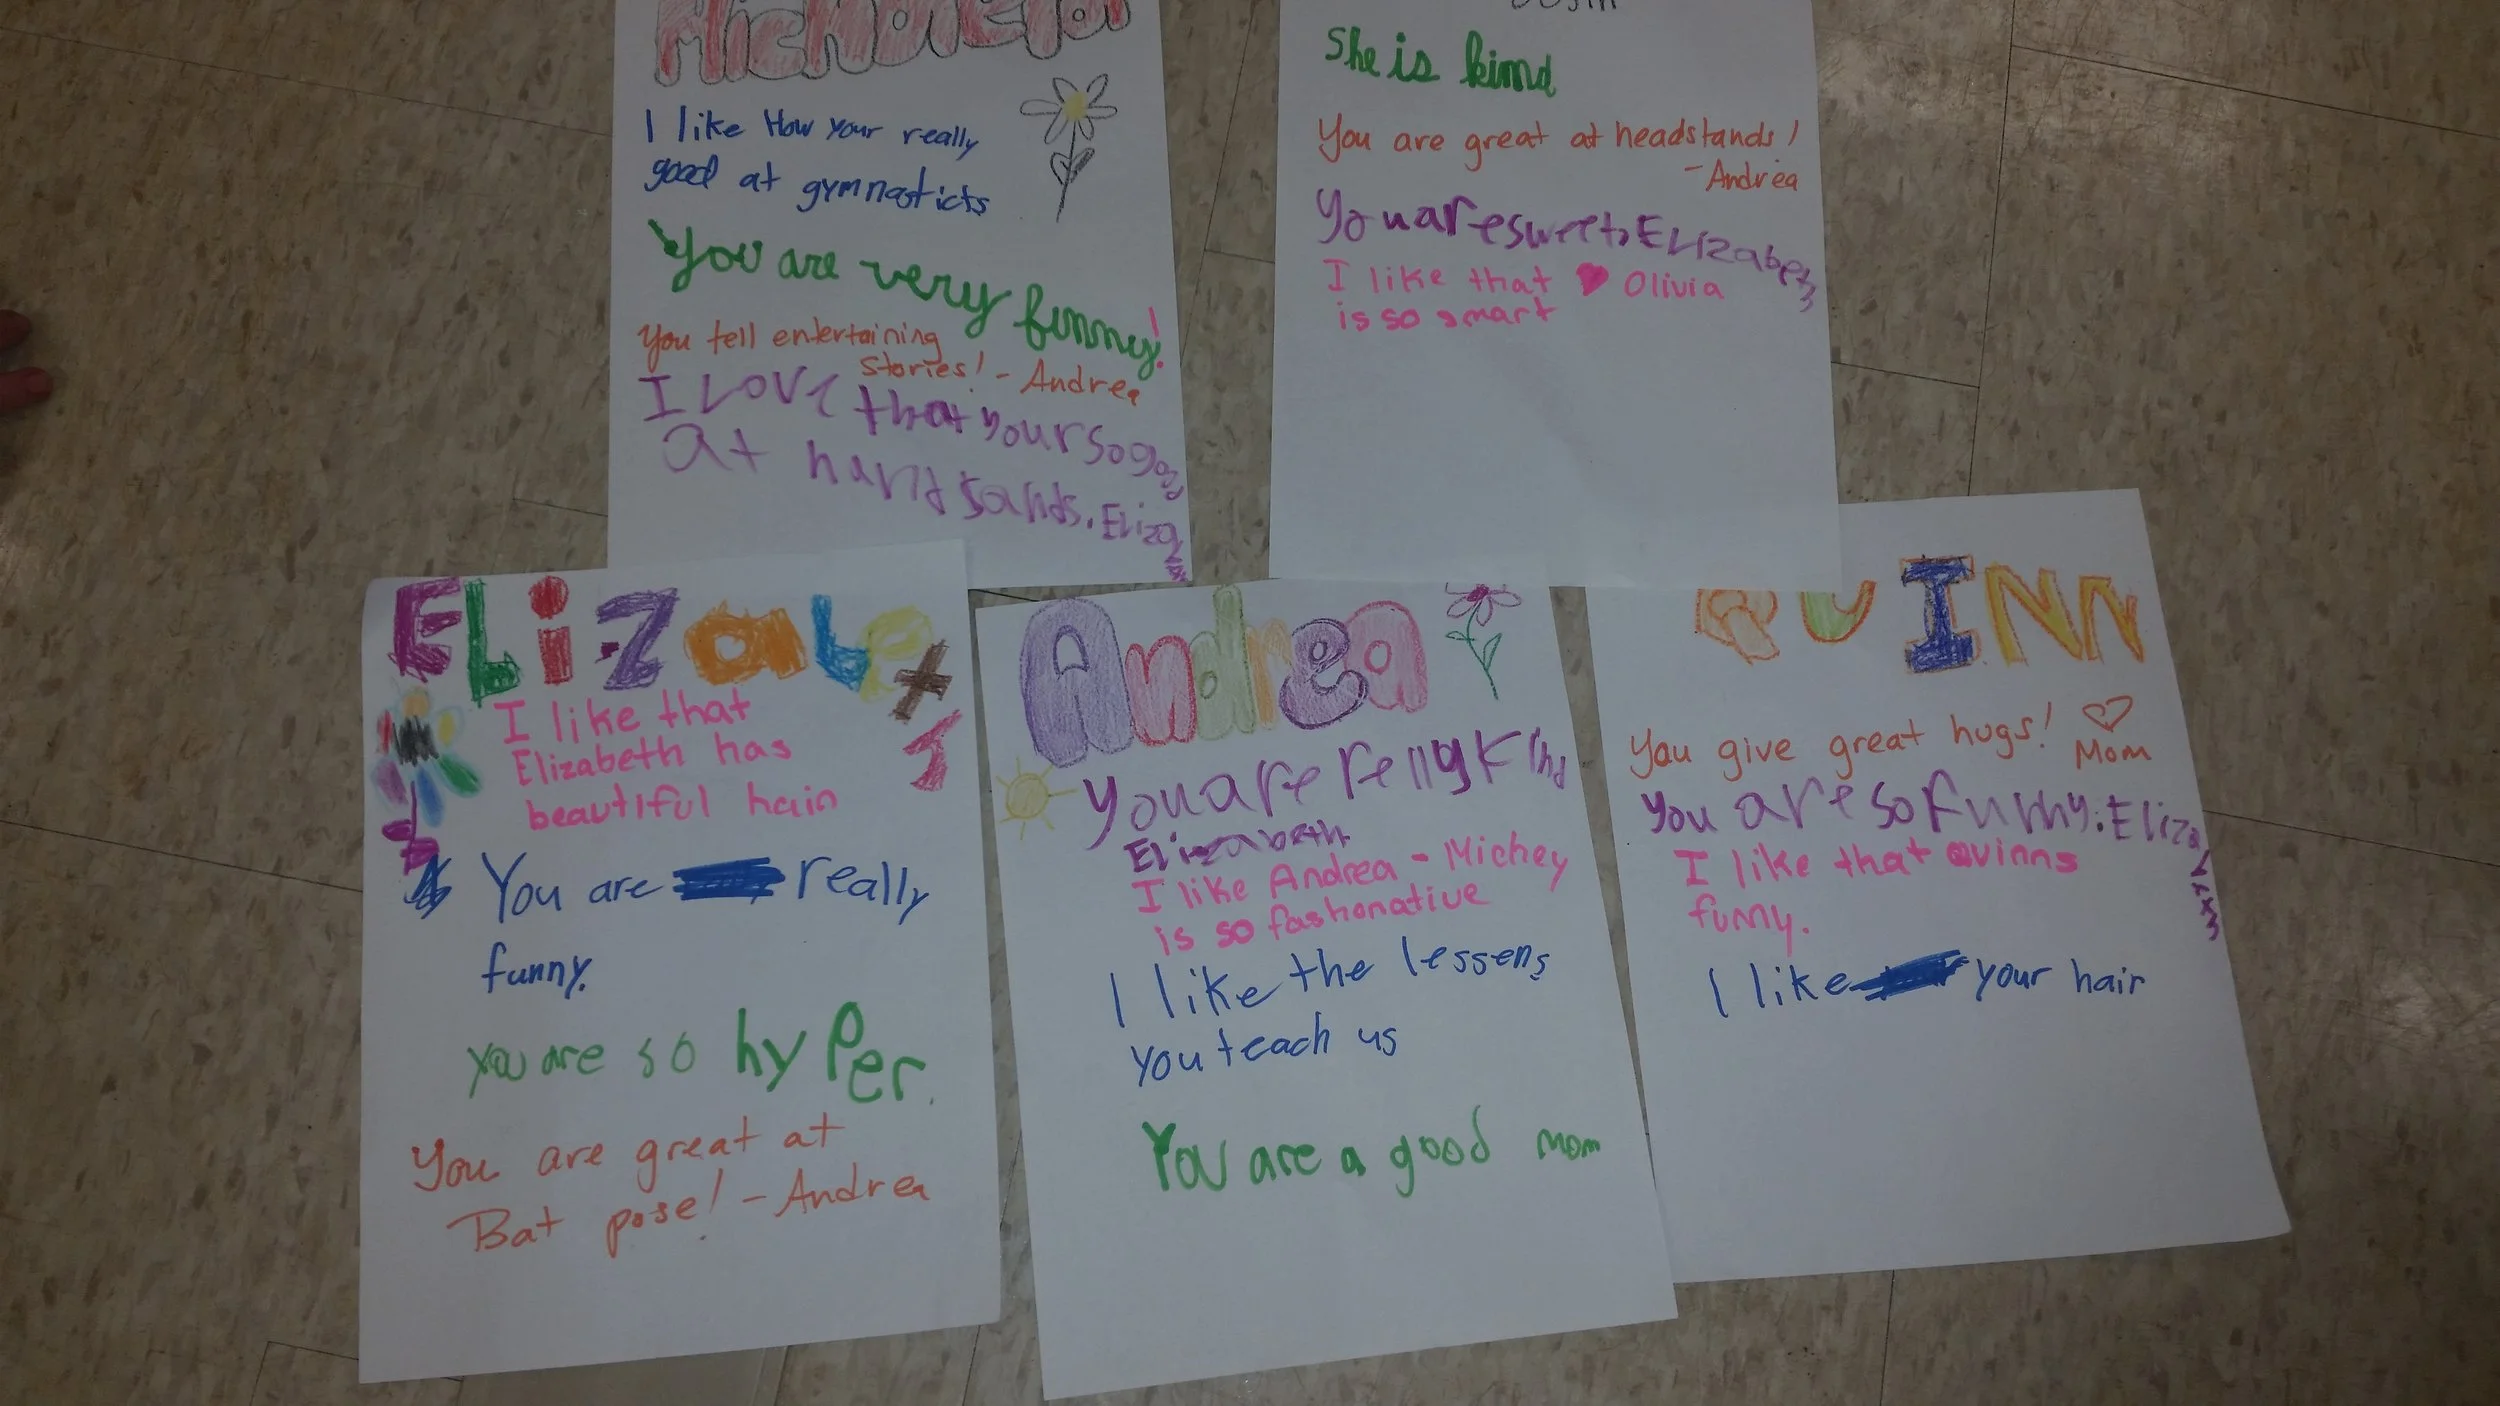 I like How your really
good at gymnasticts
You are very funny!
You tell entertaining
stories! - Andrea
I LOVE that your so good
at hand sands. Elizabeth
She is kind
You are great at headstands!
- Andrea
You are sweet, Elizabeth
I like that ♥ Olivia
is so smart
ELiZabeth
I like that
Elizabeth has
beautiful hair
You are really
funny.
you are so hyper.
You are great at
Bat pose! - Andrea
Andrea
you are relly kind
Elizabeth
I like Andrea - Michey
is so fashonative
I like the lessens
you teach us
You are a good mom
QUINN
You give great hugs! ♡
Mom
You are so funny. Elizabeth
I like that Quinns
funny.
I like your hair